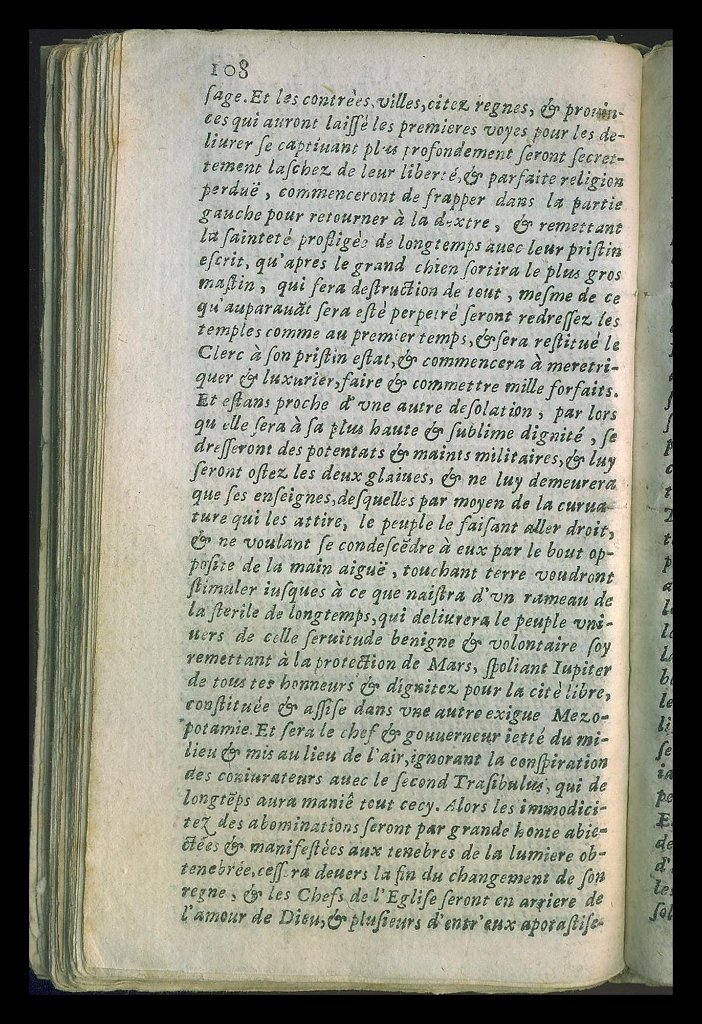 108
ſage. Et les contrèes, villes, citez regnes, & prouin-
ces qui auront laiſſé les premieres voyes pour les de-
liurer ſe captiuant plus profondement ſeront ſecret-
tement laſchez de leur liberté, & parfaite religion
perduë, commenceront de frapper dans la partie
gauche pour retourner à la dextre, & remettant
la ſainteté profligée de longtemps auec leur priſtin
eſcrit, qu'apres le grand chien ſortira le plus gros
maſtin, qui fera deſtruction de tout, meſme de ce
qu'auparauãt ſera eſté perpetré ſeront redreſſez les
temples comme au premier temps, & ſera reſtitué le
Clerc à ſon priſtin eſtat, & commencera à meretri-
quer & luxurier, faire & commettre mille forfaits.
Et eſtans proche d'vne autre deſolation, par lors
qu'elle ſera à ſa plus haute & ſublime dignité, ſe
dreſſeront des potentats & maints militaires, & luy
ſeront oſtez les deux glaiues, & ne luy demeurera
que ſes enſeignes, deſquelles par moyen de la curua-
ture qui les attire, le peuple le faiſant aller droit,
& ne voulant ſe condeſcẽdre à eux par le bout op-
poſite de la main aiguë, touchant terre voudront
ſtimuler iuſques à ce que naiſtra d'vn rameau de
la ſterile de longtemps, qui deliurera le peuple vni-
uers de celle ſeruitude benigne & volontaire ſoy
remettant à la protection de Mars, ſpoliant Iupiter
de tous tes honneurs & dignitez pour la cité libre,
conſtituée & aſſiſe dans vne autre exigue Mezo-
potamie. Et ſera le chef & gouuerneur ietté du mi-
lieu & mis au lieu de l'air, ignorant la conſpiration
des coniurateurs auec le ſecond Traſibulus, qui de
longtẽps aura manié tout cecy. Alors les immodici-
tez des abominations ſeront par grande honte abie-
ctées & manifeſtées aux tenebres de la lumiere ob-
tenebrée, ceſſera deuers la fin du changement de ſon
regne, & les Chefs de l'Egliſe ſeront en arriere de
l'amour de Dieu, & pluſieurs d'entr'eux apotaſtiſe-